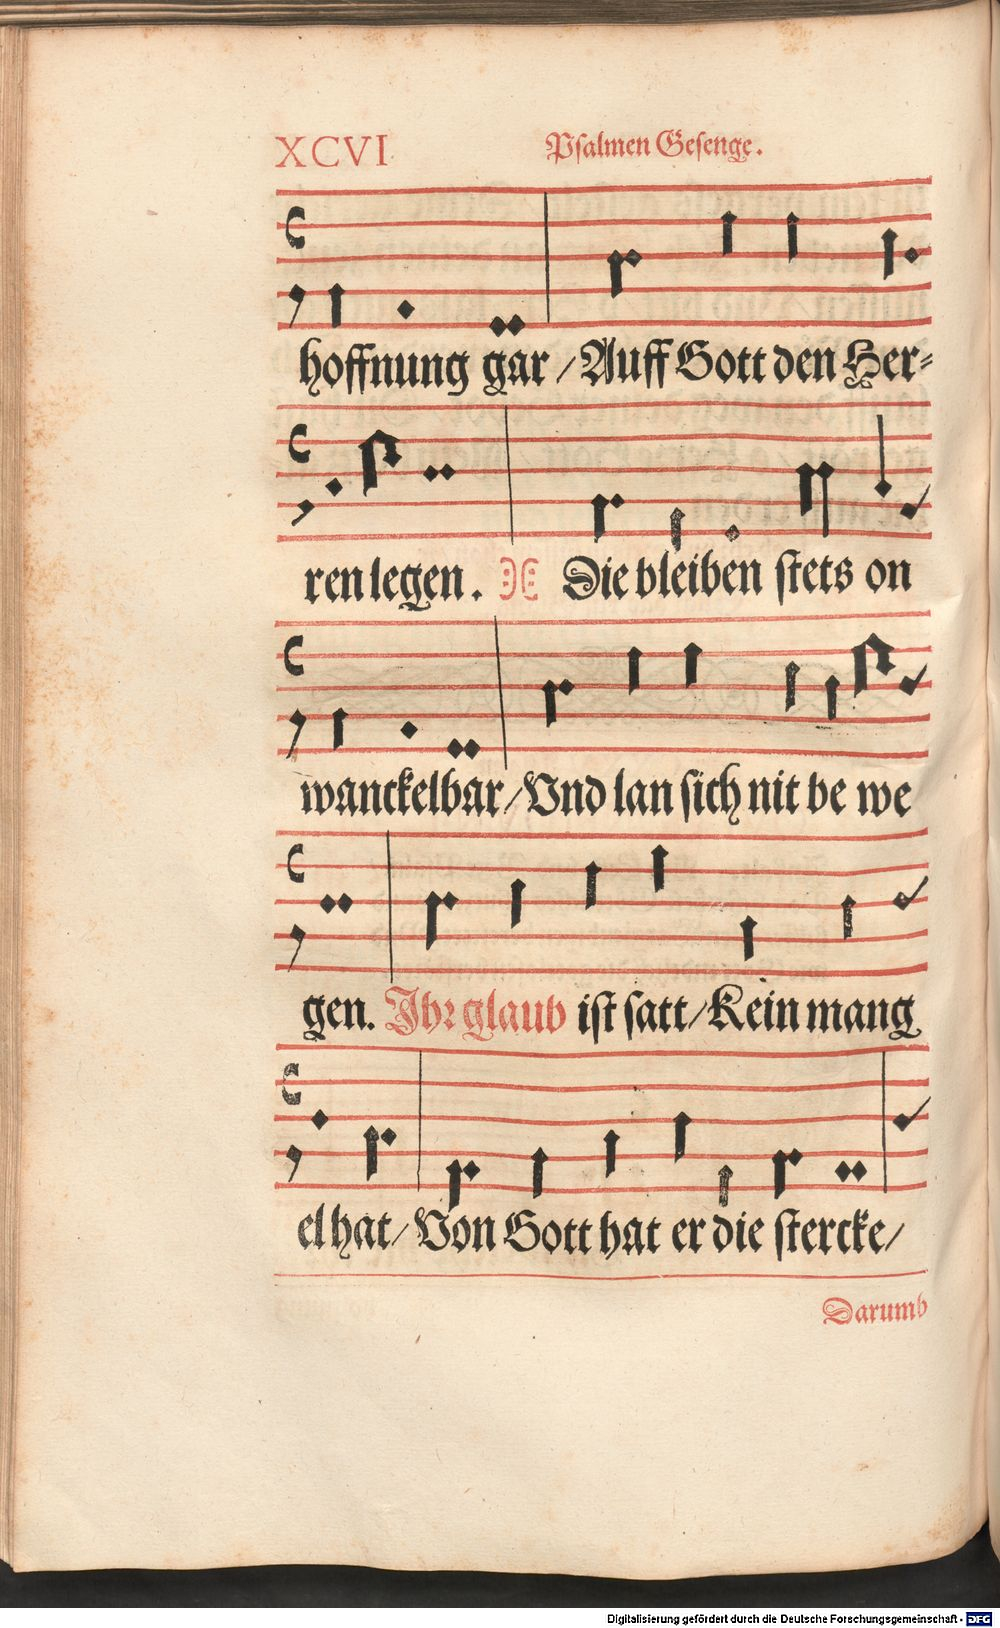 XCVI Psalmen Gesenge.
hoffnung gar / Auff Gott den Her⸗
ren legen. Die bleiben stets on
wanckelbar / Vnd lan sich nit be we
gen. Ihr glaub ist satt / Kein mang
el hat / Von Gott hat er die stercke /
Darumb
Digitalisierung gefördert durch die Deutsche Forschungsgemeinschaft - DFG